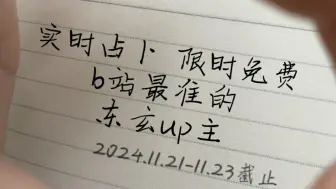 实时占卜 限时免费
b站最准的
东玄up主
2024.11.21-11.23截止